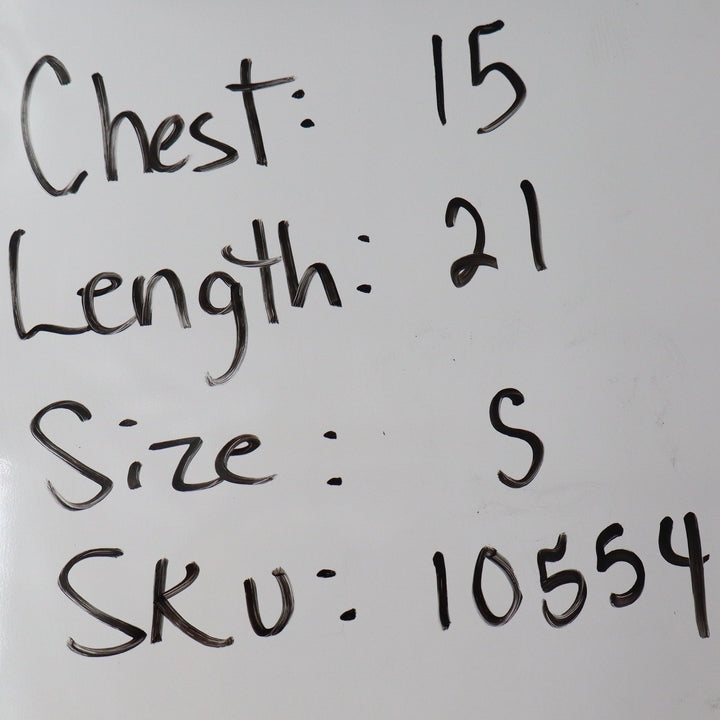 Chest: 15
Length: 21
Size: S
SKU: 10554